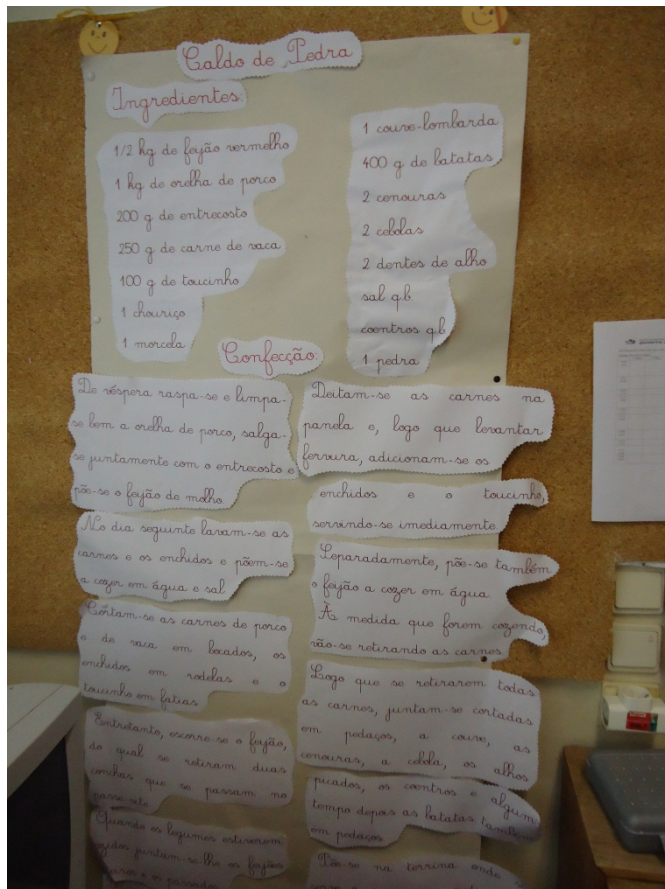 Caldo de Pedra
Ingredientes:
1/2 kg de feijão vermelho
1 kg de orelha de porco
200 g de entrecosto
250 g de carne de vaca
100 g de toucinho
1 chouriço
1 morcela
1 couve-lombarda
400 g de batatas
2 cenouras
2 cebolas
2 dentes de alho
sal q.b.
coentros q.b
1 pedra
Confecção:
De véspera raspa-se e limpa-
se bem a orelha de porco, salga-
se juntamente com o entrecosto e
põe-se o feijão de molho.
No dia seguinte lavam-se as
carnes e os enchidos e põem-se
a cozer em água e sal.
Cortam-se as carnes de porco
e de vaca em bocados, os
enchidos em rodelas e o
toucinho em fatias.
Entretanto, escorre-se o feijão,
do qual se retiram duas
conchas que se passam no
passe-vite.
Quando os legumes estiverem
cozidos juntam-se-lhe os feijões
e os passados
Deitam-se as carnes na
panela e, logo que levantar
fervura, adicionam-se os
enchidos e o toucinho,
servindo-se imediamente.
Separadamente, põe-se também
o feijão a cozer em água.
À medida que forem cozendo,
vão-se retirando as carnes.
Logo que se retirarem todas
as carnes, juntam-se cortadas
em pedaços, a couve, as
cenouras, a cebola, os alhos
picados, os coentros e algum
tempo depois as batatas também
em pedaços.
Põe-se na terrina onde